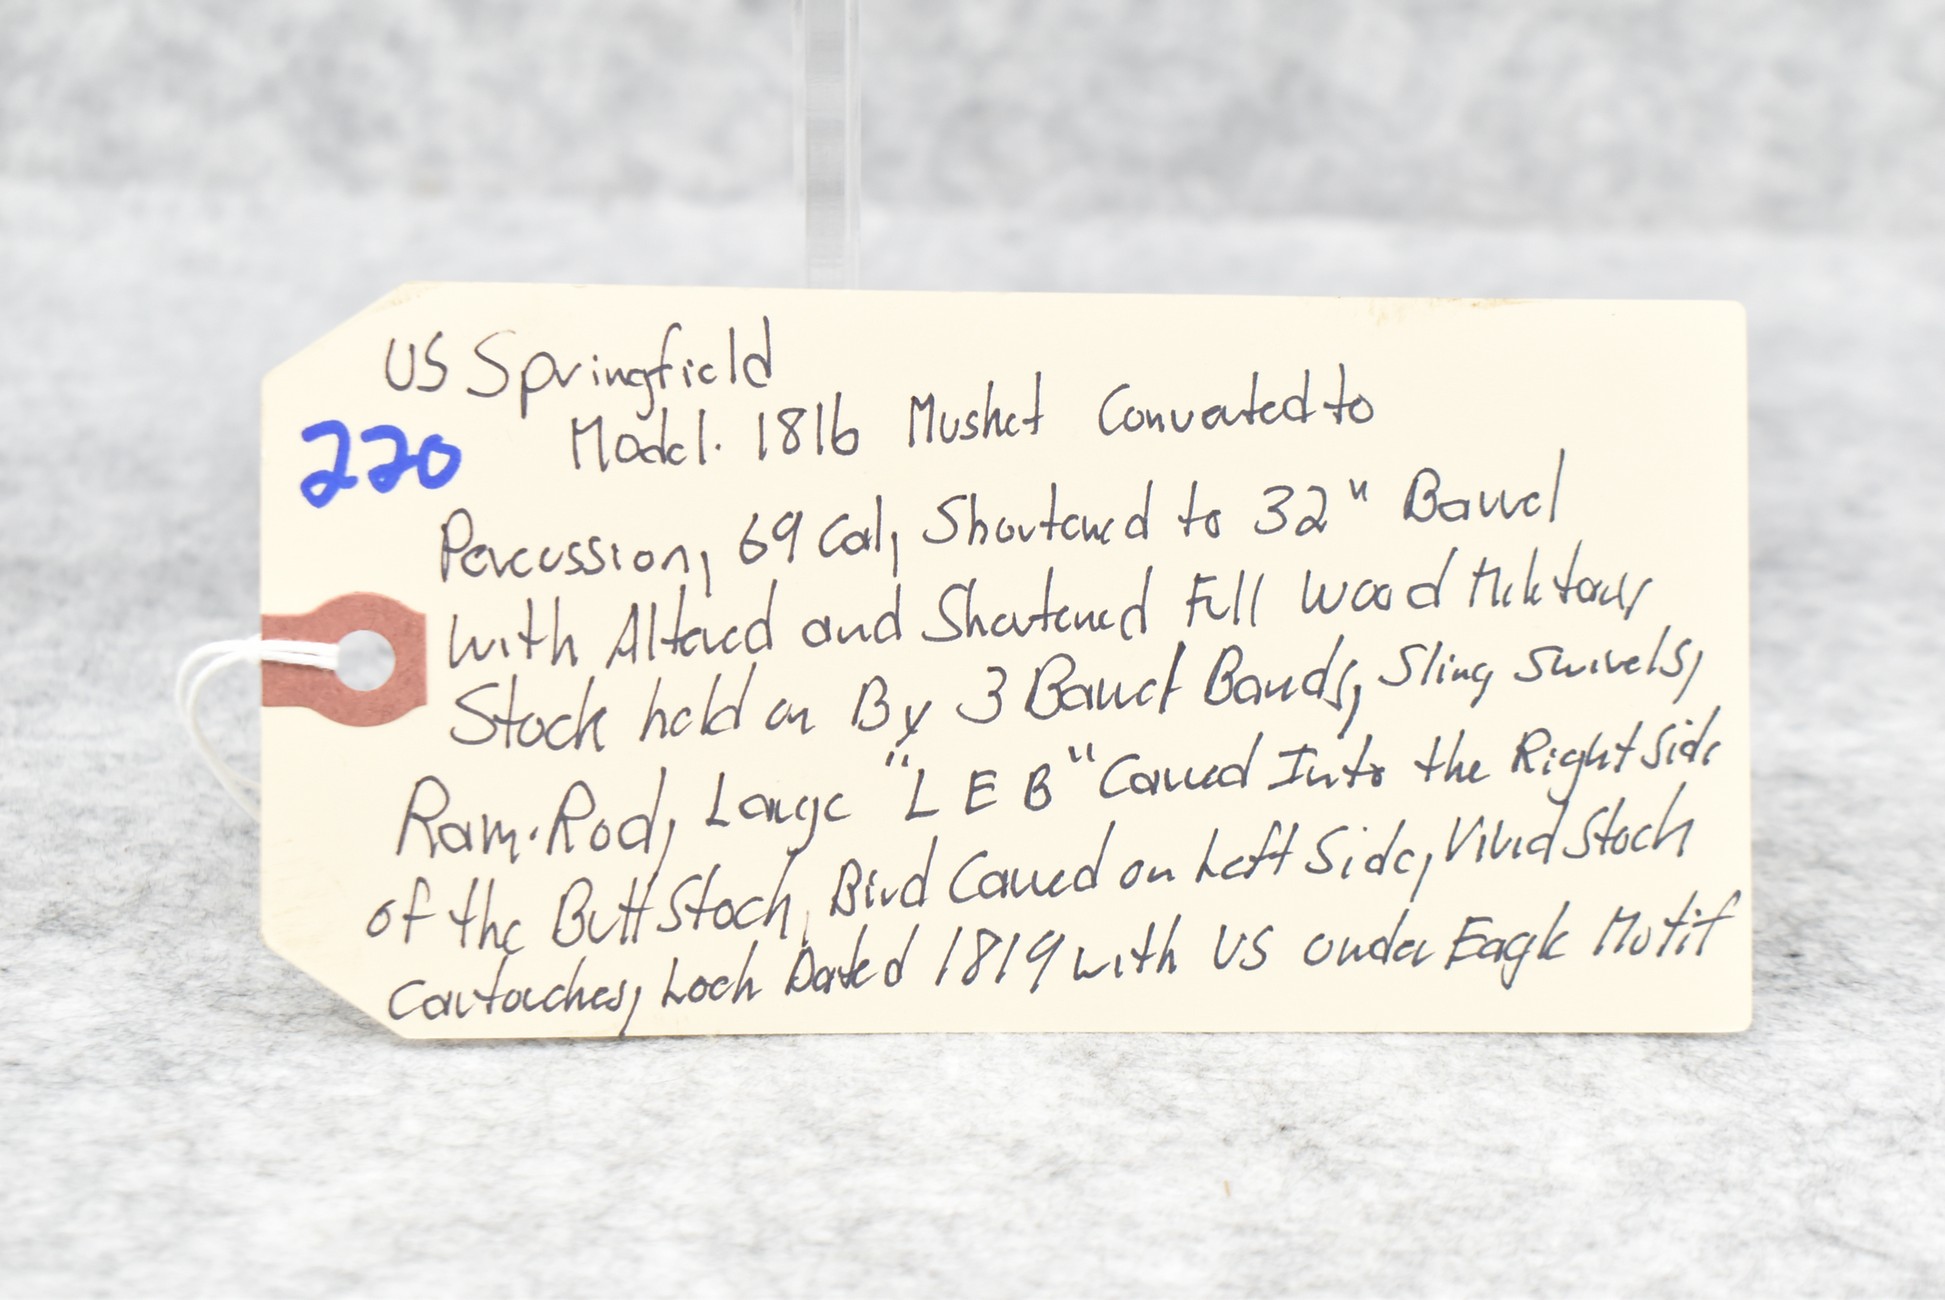 US Springfield
220
Model. 1816 Musket Converted to
Percussion, 69 Cal, Shortened to 32" Barrel
with Altered and Shortened Full Wood Military
Stock held on By 3 Barrel Bands, Sling Swivels,
Ram-Rod, Large "L E B" Carved Into the Right Side
of the Butt Stock, Bird Carved on Left Side, Vivid Stock
Cartouches, Lock Dated 1819 with US under Eagle Motif